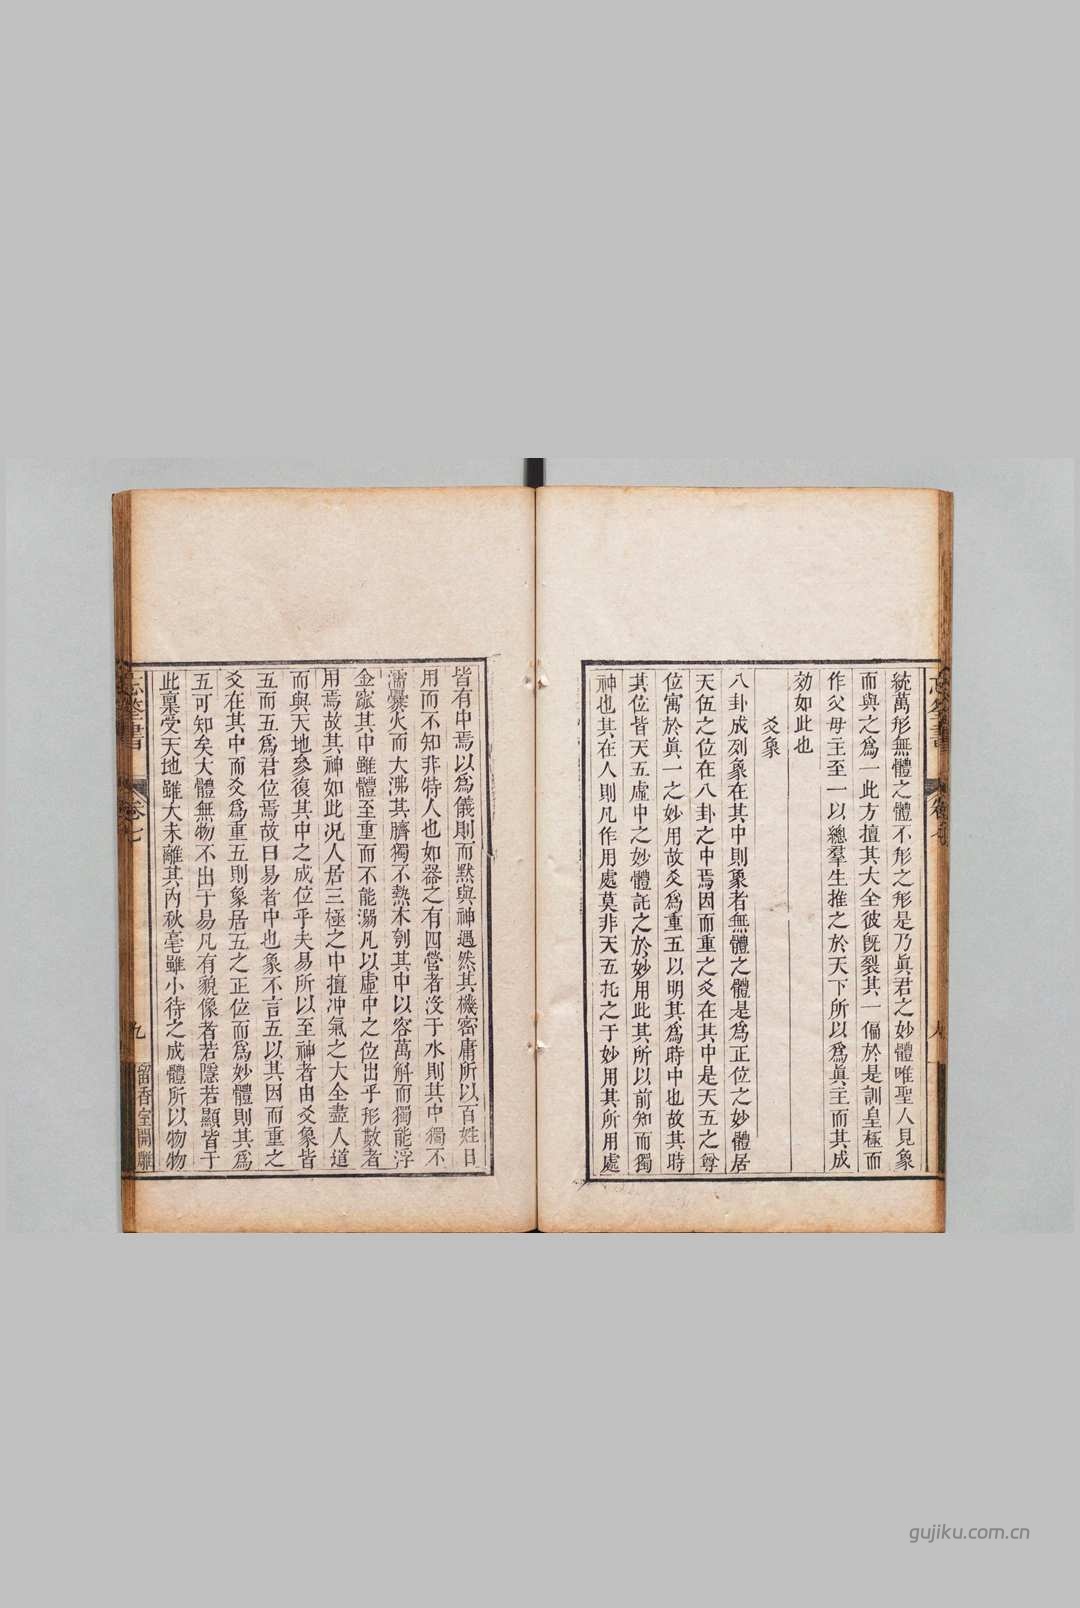 統萬形無體之體不形之形是乃眞君之妙體唯聖人見象
而與之爲一此方擅其大全彼旣裂其一偏於是訓皇極而
作父母主至一以總羣生推之於天下所以爲眞主而其成
効如此也
爻象
八卦成列象在其中則象者無體之體是爲正位之妙體居
天伍之位在八卦之中焉因而重之爻在其中是天五之尊
位寓於眞一之妙用故爻爲重五以明其爲時中也故其時
其位皆天五虛中之妙體託之於妙用此其所以前知而獨
神也其在人則凡作用處莫非天五托之于妙用其所用處
皆有中焉以爲儀則而默與神遇然其機密庸所以百姓日
用而不知非特人也如器之有四營者沒于水則其中獨不
濡爨火而大沸其臍獨不熱木刳其中以容萬斛而獨能浮
金窽其中雖體至重而不能溺凡以虛中之位出乎形數者
用焉故其神如此况人居三極之中擅冲氣之大全盡人道
而與天地參復其中之成位乎夫易所以至神者由爻象皆
五而五爲君位焉故曰易者中也象不言五以其因而重之
爻在其中而爻爲重五則象居五之正位而爲妙體則其爲
五可知矣大體無物不出于易凡有貌像者若隱若顯皆于
此稟受天地雖大未離其內秋毫雖小待之成體所以物物
忘筌書
卷七
九
留香室開雕